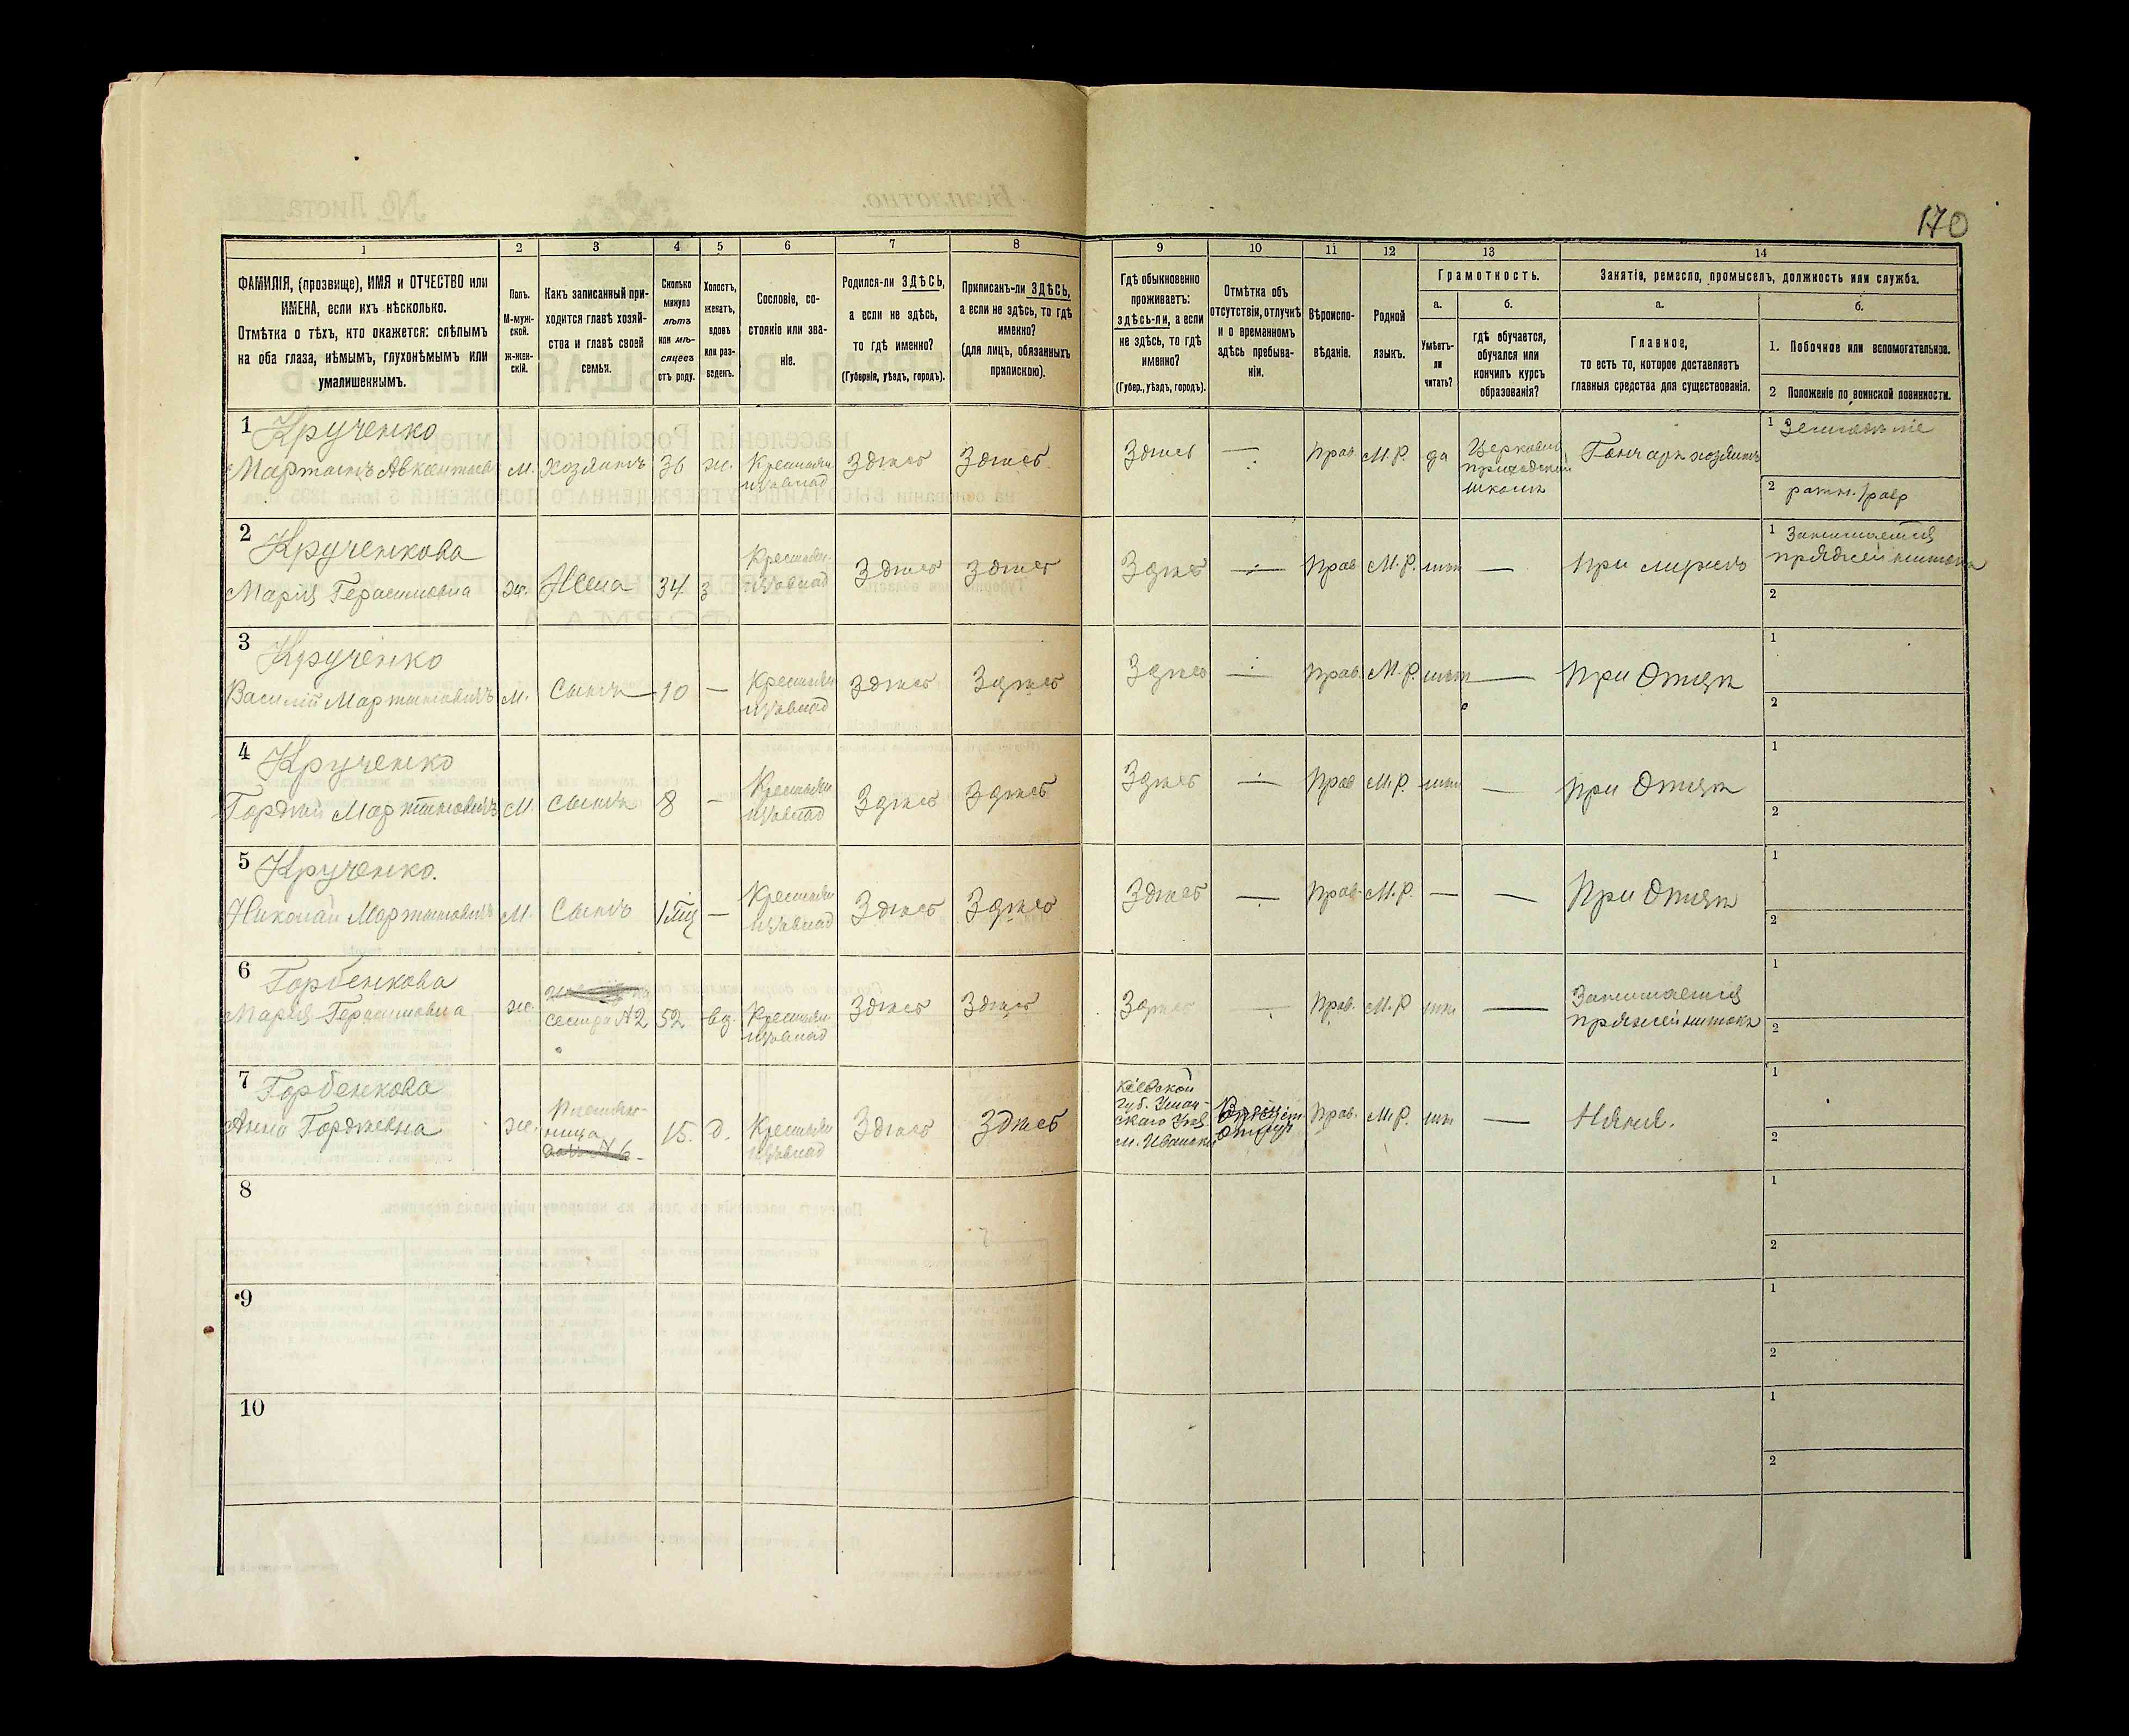 170
1
2
3
4
5
6
7
8
9
10
11
12
13
14
ФАМИЛІЯ, (прозвище), ИМЯ и ОТЧЕСТВО или
ИМЕНА, если ихъ нѣсколько.
Отмѣтка о тѣхъ, кто окажется: слѣпымъ
на оба глаза, нѣмымъ, глухонѣмымъ или
умалишеннымъ.
Полъ.
М-муж-
ской.
ж-жен-
скій.
Какъ записанный при-
ходится главѣ хозяй-
стоа и главѣ своей
семьи.
Сколько
минуло
лѣтъ
или мѣ-
сяцевъ
отъ роду.
Холостъ,
женатъ,
вдовъ
или раз-
веденъ.
Сословіе, со-
стояніе или зва-
ніе.
Родился-ли ЗДѢСЬ,
а если не здѣсь,
то гдѣ именно?
(Губернія, уѣздъ, городъ).
Приписанъ-ли ЗДѢСЬ,
а если не здѣсь, то гдѣ
именно?
(для лицъ, обязанныхъ
припискою).
Гдѣ обыкновенно
проживаетъ:
здѣсь-ли, а если
не здѣсь, то гдѣ
именно?
(Губер., уѣздъ, городъ).
Отмѣтка объ
отсутствіи, отлучкѣ
и о временномъ
здѣсь пребыва-
ніи.
Вѣроиспо-
вѣданіе.
Родной
языкъ.
Грамотность.
а.
б.
Умѣетъ-
ли
читать?
гдѣ обучается,
обучался или
кончилъ курсъ
образованія?
Занятіе, ремесло, промыселъ, должность или служба.
а.
б.
Главное,
то есть то, которое доставляетъ
главныя средства для существованія.
1. Побочное или вспомогательное.
2 Положеніе по воинской повинности.
1 Крученко
Мартынъ м. хозяинъ 36 ж. Крестьян
изъ влад Здѣсь Здѣсь Здѣсь — Прав М.Р. да Церковно
приходской
школѣ Гончаръ хозяинъ
1
2 ратн.
2 Крученкова
Марія Герасимовна ж. Жена 34 З Крестьян
изъ влад Здѣсь Здѣсь Здѣсь — Прав М.Р. нѣт — При мужѣ
1 Занимается
пряжей нитокъ
2
3 Крученко
Василій Мартыновичъ М. Сынъ 10 — Крестьян
изъ влад Здѣсь Здѣсь Здѣсь — Прав. М.Р. нѣт — При Отцѣ
1
2
4 Крученко
Гордѣй Мартыновичъ М. сынъ 8 — Крестьян
изъ влад Здѣсь Здѣсь Здѣсь — Прав М.Р. нѣт — При Отцѣ
1
2
5 Крученко.
Николай Мартыновичъ М. Сынъ — Крестьян
изъ влад Здѣсь Здѣсь Здѣсь — Прав. М.Р. — — При Отцѣ
1
2
6 Горбенкова
Марія Герасимовна ж. сестра №2 52 вд. Крестьян
изъ влад Здѣсь Здѣсь Здѣсь — Прав. М.Р нѣт — Занимается
пряжей нитокъ
1
2
7 Горбенкова
Анна Гордѣевна ж. Племян-
ница 15. д. Крестьян
изъ влад Здѣсь Здѣсь Кіевской
губ. Уман-
скаго Уѣз.
м. Иваньки Прав. М.Р. нѣт — Няня.
1
2
8
1
2
9
1
2
10
1
2